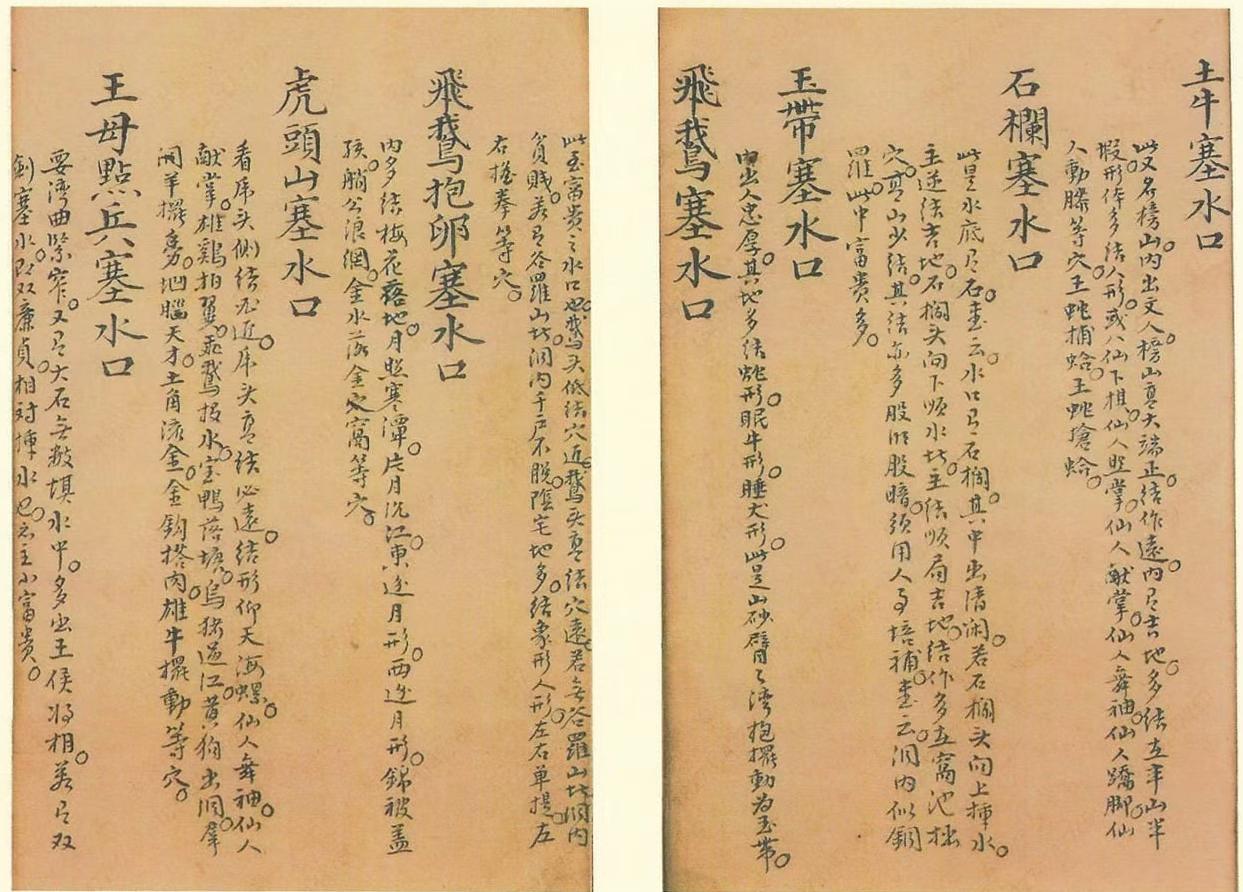 土牛塞水口
此又名榜山。內出文人。榜山高大端正。結作遠。內有吉地。多結在半山半
假形。作多結人形。或八仙下棋。仙人照掌。仙人献掌。仙人舞袖。仙人蹺脚。仙
人動膝等穴。土蛇捕蛤。土蛇搶蛤。
石欄塞水口
此是水底有石。書云。水口有石欄。其中出清閑。若石欄头向上揷水。
主逆結吉地。石欄头向下順水。此主結順局吉地。結作多在窩池
穴。高山少結。其結亦多股明股暗。須用人事培補。書云。洞内似銅
羅。此中富貴多。
玉帶塞水口
中出人忠厚。其地多結蛇形。眠牛形。睡犬形。此是山砂臂々灣抱擺動为玉帶。
飛鵞塞水口
此至富貴之水口也。鵞头低結穴近。鵞头高結穴遠。若無谷羅山。此洞内
貧賤。若有谷羅山。此洞内千戸不脫。陰宅地多。結象形人形。左右單提。左
右搖拳等穴。
飛鵞抱卵塞水口
内多結梅花落地。月照寒潭。片月沉江。東逆月形。西逆月形。錦被盖
孩。艄公浪網。金水落金穴窩等穴。
虎頭山塞水口
看虎头側結必近。虎头高結必遠。結形仰天海螺。仙人舞袖。仙人
献掌。雄鷄拍翼。乖鵞扳水。宝鴨落塘。烏猪过江。黄狗出洞。羣
羊擺勇。凹腦天才。土角流金。金鈎搭肉。雄牛擺動等穴。
王母點兵塞水口
要湾曲緊窄。又有大石無数填水中。多出王侯将相。若有双
劍塞水。即双廉貞。相对揷水也。亦主小富貴。